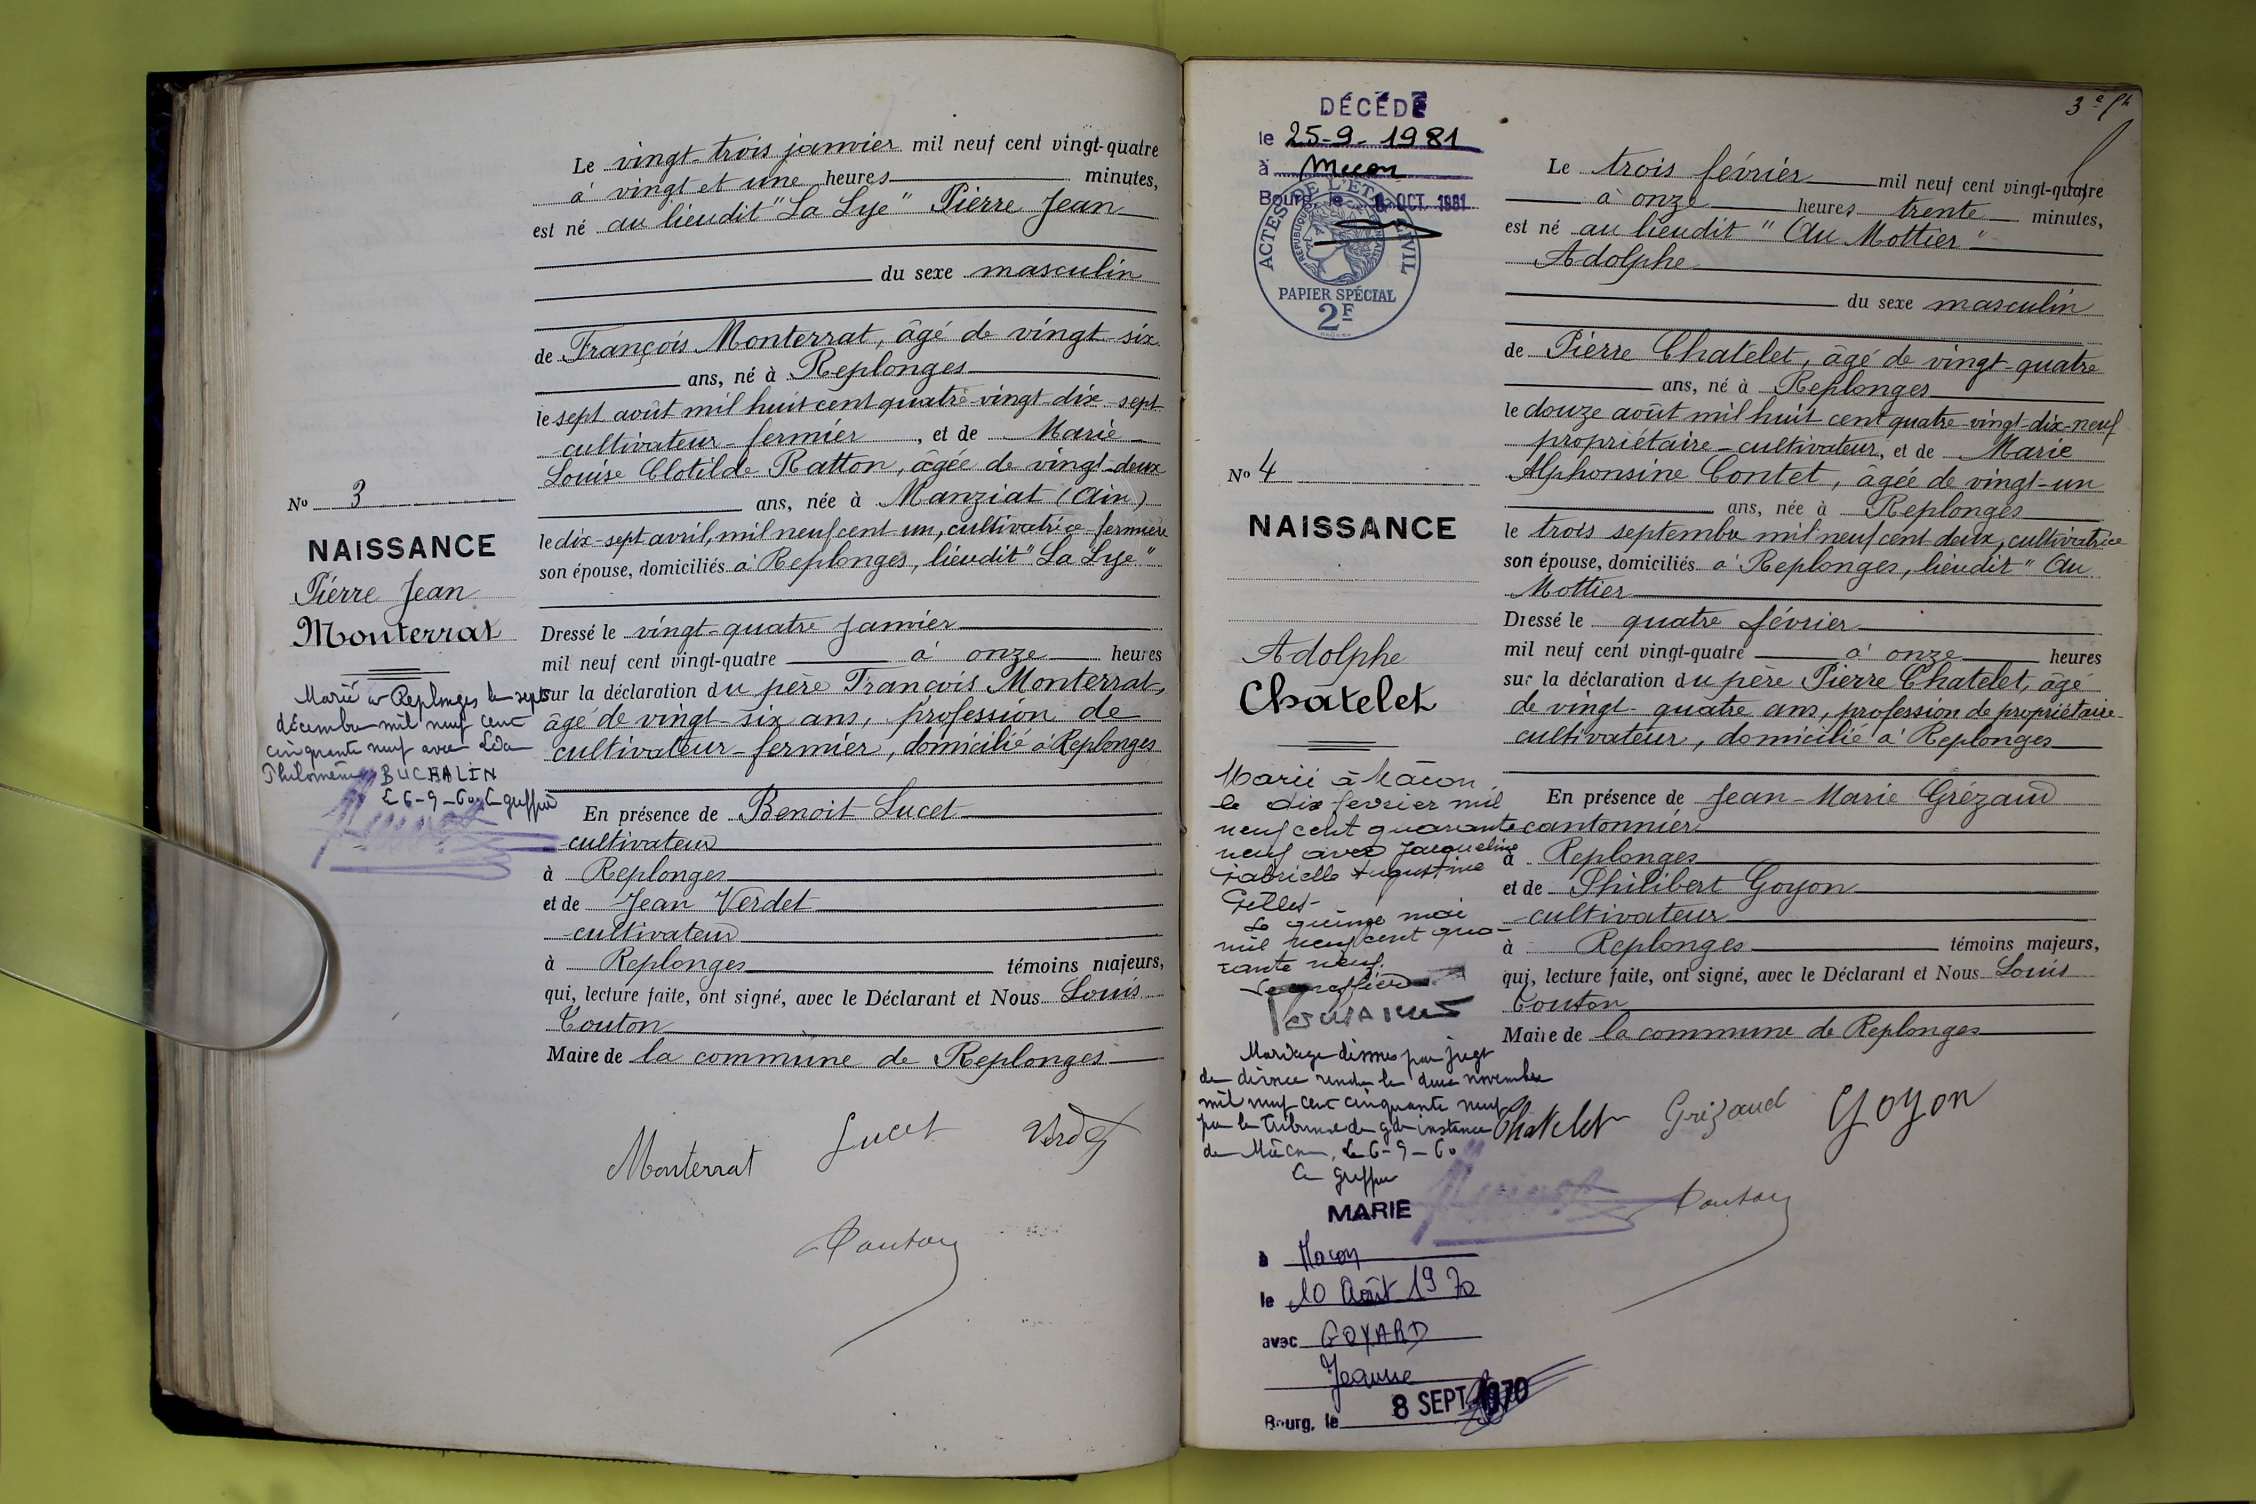 Le vingt-trois janvier mil neuf cent vingt-quatre
à vingt et une heures minutes,
est né au lieudit "La Lye" Pierre Jean
du sexe masculin
de François Monterrat, âgé de vingt-six
ans, né à Replonges
le sept août mil huit cent quatre-vingt-dix-sept
cultivateur-fermier, et de Marie
Louise Clotilde Ratton, âgée de vingt-deux
ans, née à Manziat (Ain)
le dix-sept avril, mil neuf cent un, cultivatrice-fermière
son épouse, domiciliés à Replonges, lieudit "La Lye"
Dressé le vingt-quatre Janvier
mil neuf cent vingt-quatre à onze heures
sur la déclaration du père François Monterrat,
âgé de vingt-six ans, profession de
cultivateur-fermier, domicilié à Replonges
En présence de Benoit Lucet
cultivateur
à Replonges
et de Jean Verdet
cultivateur
à Replonges témoins majeurs,
qui, lecture faite, ont signé, avec le Déclarant et Nous Louis
Touton
Maire de la commune de Replonges
Monterrat Lucet Verdet
Touton
No 3
NAISSANCE
Pierre Jean
Monterrat
Marié à Replonges le sept
décembre mil neuf cent
cinquante neuf avec
Philomène BUCHALIN
Le 6-9-60 Le greffier
3e
DÉCÉDÉ
le 25-9-1981
à Mâcon
Bourg, le 8 OCT. 1981
ACTES DE L'ETAT CIVIL
REPUBLIQUE FRANÇAISE
PAPIER SPÉCIAL
2F
No 4
NAISSANCE
Adolphe
Châtelet
Marié à Mâcon
le dix février mil
neuf cent quarante
neuf avec Jacqueline
Gabrielle Augustine
Gelles
Le quinze mai
mil neuf cent qua-
rante neuf.
Le greffier
Mariage dissous par jugt
de divorce rendu le douze novembre
mil neuf cent cinquante neuf
par le Tribunal de gde instance
de Mâcon, Le 6-9-60
Le Greffier
MARIE
à Macon
le 10 Août 1970
avec GOYARD
Jeanne
Bourg, le 8 SEPT 1970
Le trois février mil neuf cent vingt-quatre
à onze heures trente minutes,
est né au lieudit "Au Mottier"
Adolphe
du sexe masculin
de Pierre Chatelet, âgé de vingt-quatre
ans, né à Replonges
le douze août mil huit cent quatre-vingt-dix-neuf
propriétaire-cultivateur, et de Marie
Alphonsine Contet, âgée de vingt-un
ans, née à Replonges
le trois septembre mil neuf cent deux, cultivatrice
son épouse, domiciliés à Replonges, lieudit "Au
Mottier
Dressé le quatre février
mil neuf cent vingt-quatre à onze heures
sur la déclaration du père Pierre Chatelet, âgé
de vingt-quatre ans, profession de propriétaire-
cultivateur, domicilié à Replonges
En présence de Jean-Marie Grézaud
cantonnier
à Replonges
et de Philibert Goyon
cultivateur
à Replonges témoins majeurs,
qui, lecture faite, ont signé, avec le Déclarant et Nous Louis
Touton
Maire de la commune de Replonges
Chatelet Grézaud Goyon
Touton